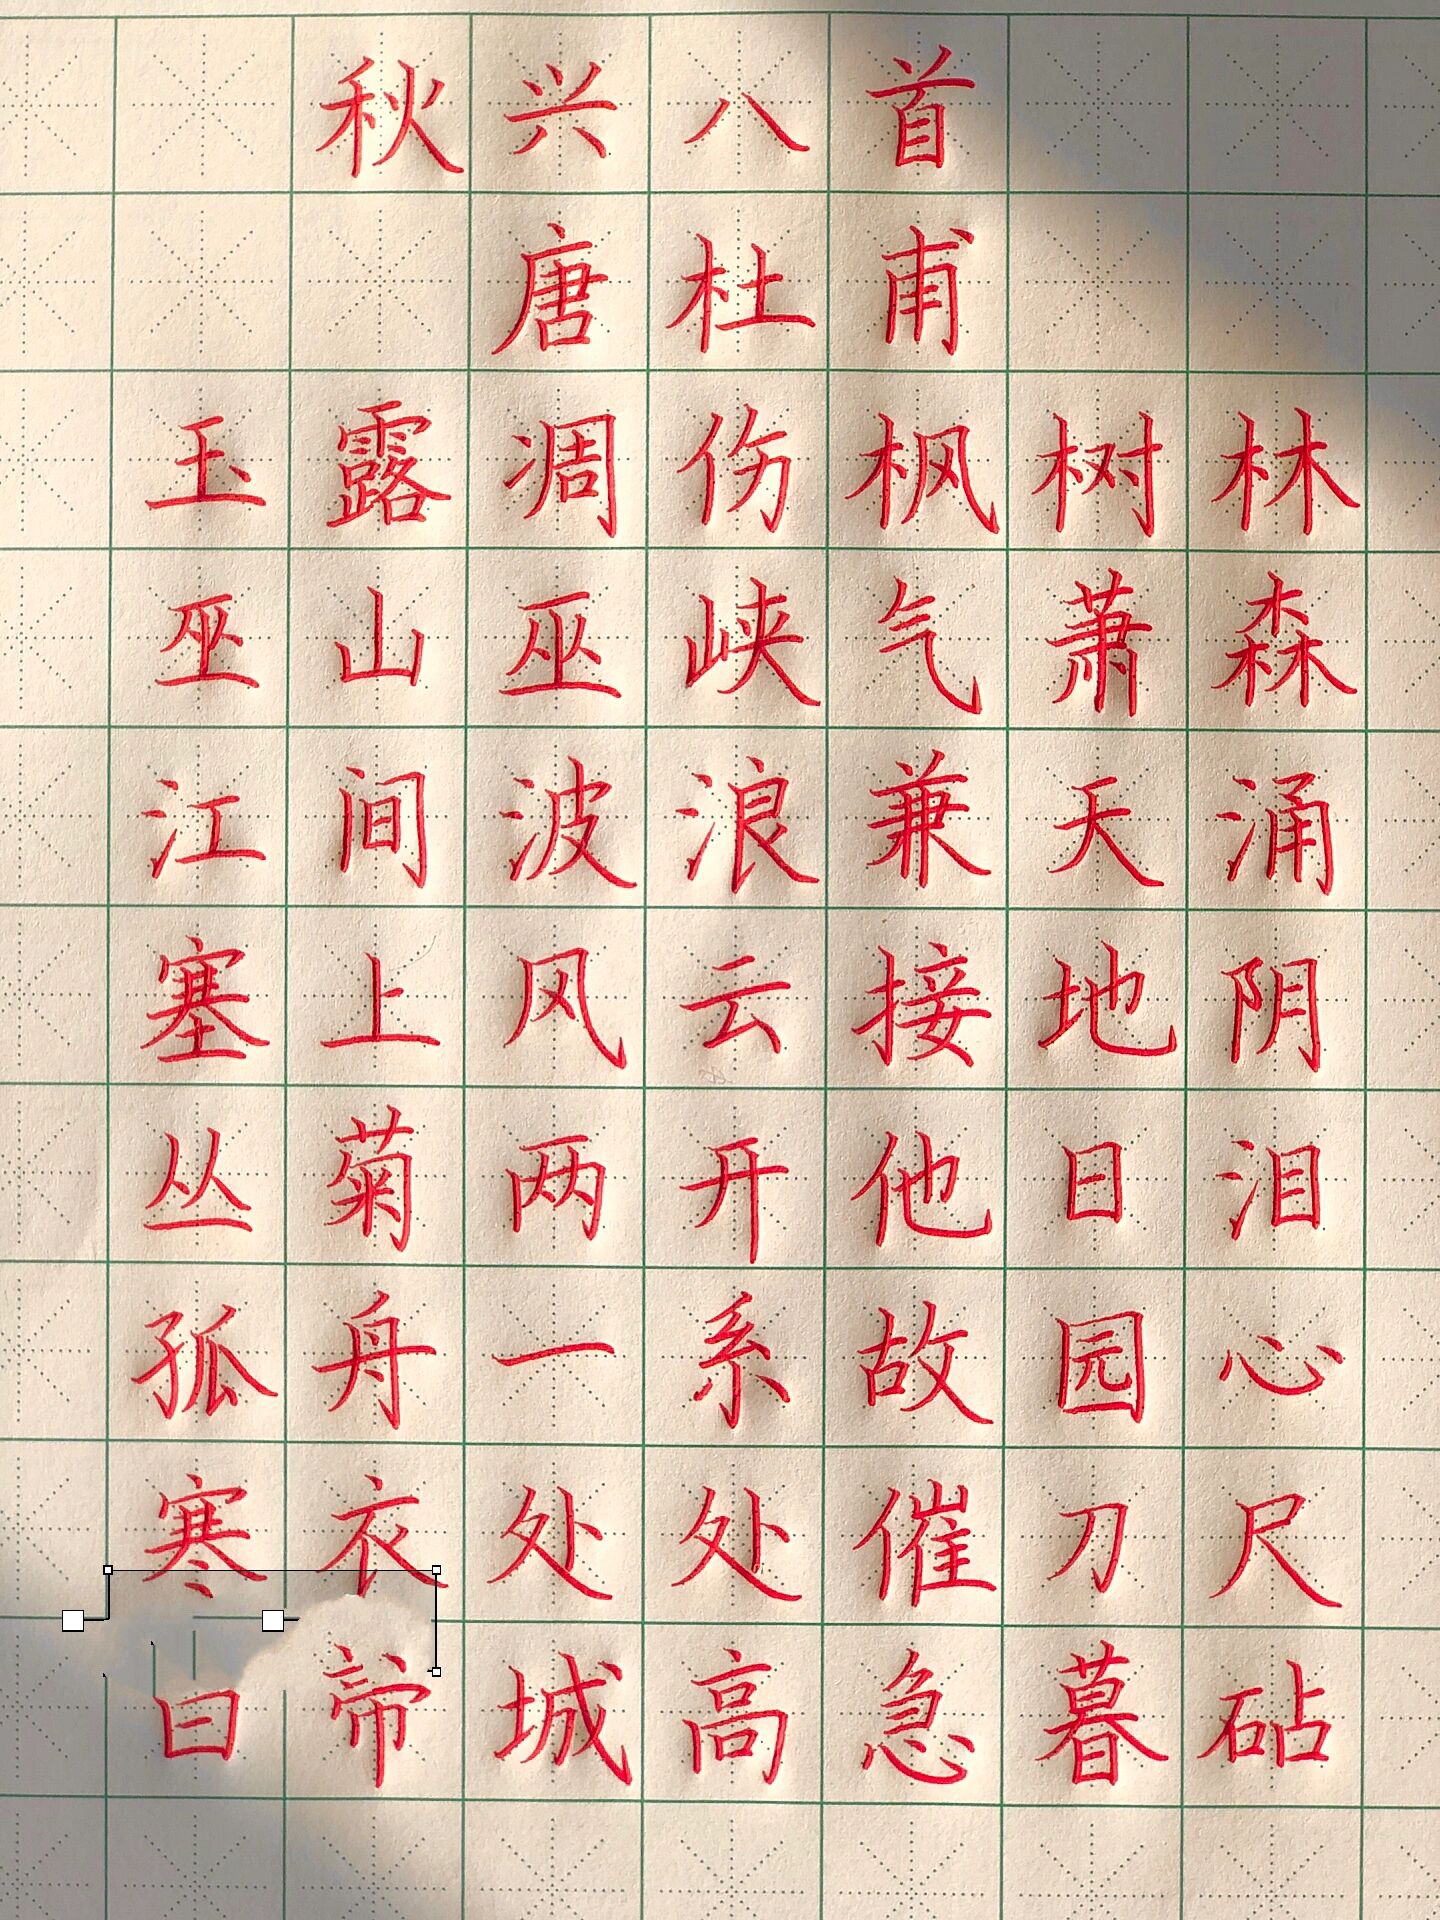 秋兴八首
唐杜甫
玉露凋伤枫树林
巫山巫峡气萧森
江间波浪兼天涌
塞上风云接地阴
丛菊两开他日泪
孤舟一系故园心
寒衣处处催刀尺
白帝城高急暮砧